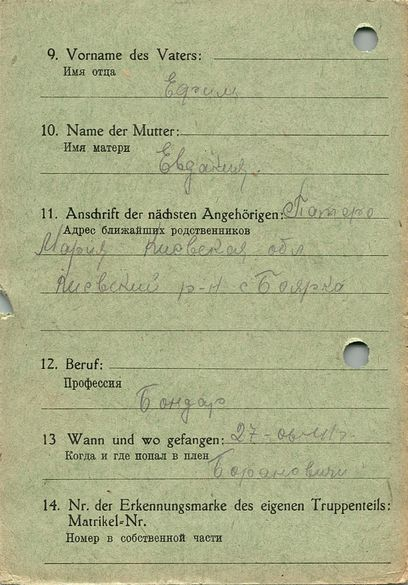 9. Vorname des Vaters:
Имя отца
Ефим
10. Name der Mutter:
Имя матери
Евдакия
11. Anschrift der nächsten Angehörigen:
Адрес ближайших родственников
Мария Киевская обл
Киевский р-н с Боярка
12. Beruf:
Профессия
Бондар
13 Wann und wo gefangen: 27-
Когда и где попал в плен
Барановичи
14. Nr. der Erkennungsmarke des eigenen Truppenteils:
Matrikel-Nr.
Номер в собственной части